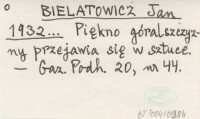 BIELATOWICZ Jan
1932... Piękno góralszczyz-
ny przejawia się w sztuce.
– Gaz. Podh. 20, nr 44.